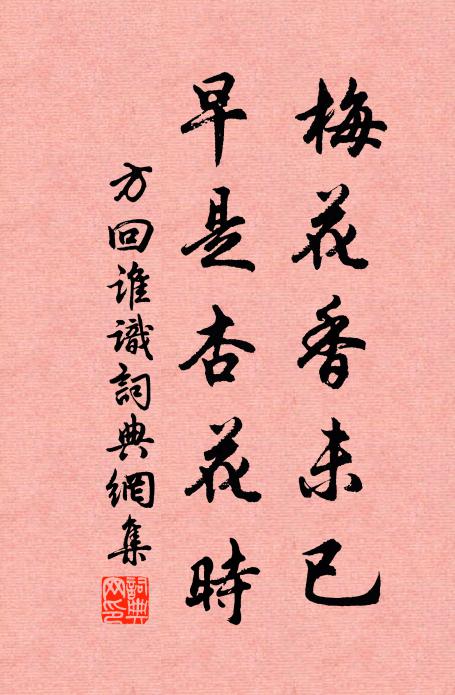 梅花香未已
早是杏花時
方回誰識詞典網集
詞典網印